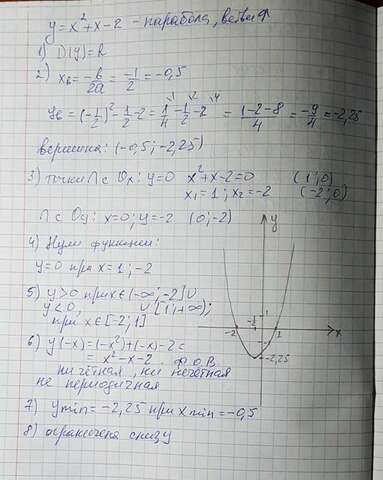 y=x²+x-2 - парабола, ветви ↑
1) D(y)=R
2) xв=-b/2a=-1/2=-0,5
yв=(-1/2)²-1/2-2=1/4-1/2-2=(1-2-8)/4=-9/4=-2,25
вершина: (-0,5;-2,25)
3) точки ∩ с Ox: y=0 x²+x-2=0 (1;0)
x₁=1; x₂=-2 (-2;0)
∩ с Oy: x=0; y=-2 (0;-2)
4) Нули функции:
y=0 при x=1;-2
5) y>0 при x∈(-∞;-2]∪
∪[1;+∞);
y<0,
при x∈[-2;1]
6) y(-x)=(-x²)+(-x)-2=
=x²-x-2 Ф.О.В.
ни чётная, ни нечётная
не периодичная
7) ymin=-2,25 при xmin=-0,5
8) ограничена снизу
y
1
-2
x
-2,25